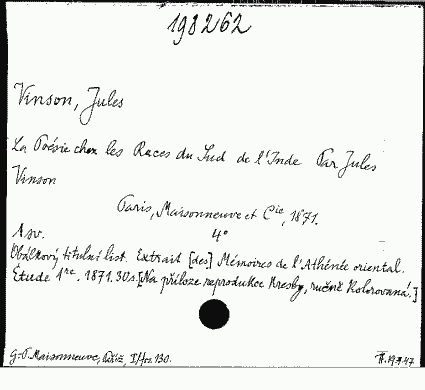 198262
Vinson, Jules
La Poésie chez les Races du Sud de l'Inde Par Jules
Vinson
Paris, Maisonneuve et Cie, 1871.
4°
1 sv.
Obálkový titulní list. Extrait [des] Mémoires de l'Athénée oriental.
Étude 1re. 1871. 30 s. [Na příloze reprodukce kresby, ručně kolorovaná.]
G.-P. Maisonneuve, Paříž, 130.
47